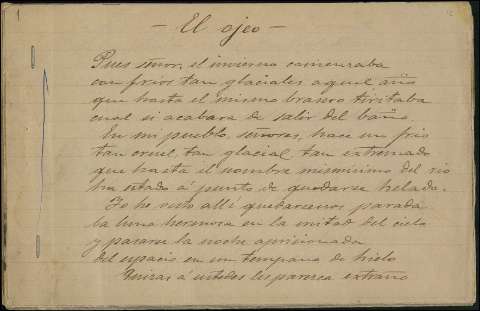 1
- El ojeo -
Pues señor, el invierno comenzaba
con fríos tan glaciales aquel año
que hasta el mismo brasero tiritaba
cual si acabara de salir del baño.
En mi pueblo, señores, hace un frío
tan cruel, tan glacial, tan extremado
que hasta el nombre mismísimo del río
ha estado á punto de quedarse helado.
Yo he visto allí quedársenos parada
la luna hermosa en la mitad del cielo
y pasarse la noche aprisionada
del espacio en un témpano de hielo
Quizás á ustedes les parezca extraño